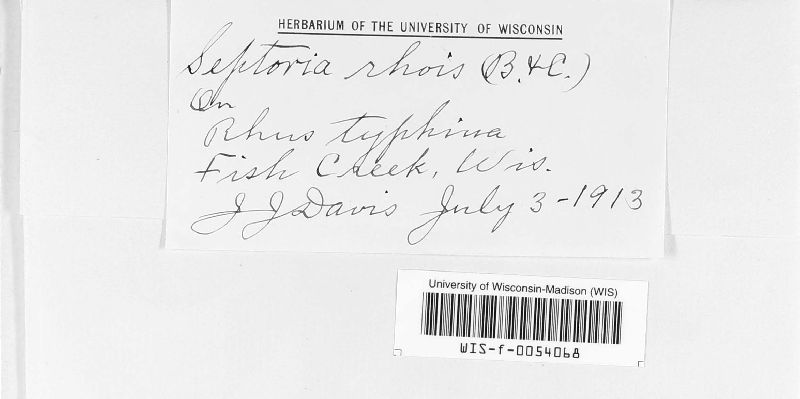 HERBARIUM OF THE UNIVERSITY OF WISCONSIN
Septoria rhois (B. & C.)
On
Rhus typhina
Fish Creek, Wis.
J J Davis July 3-1913
University of Wisconsin-Madison (WIS)
WIS-f-0054068